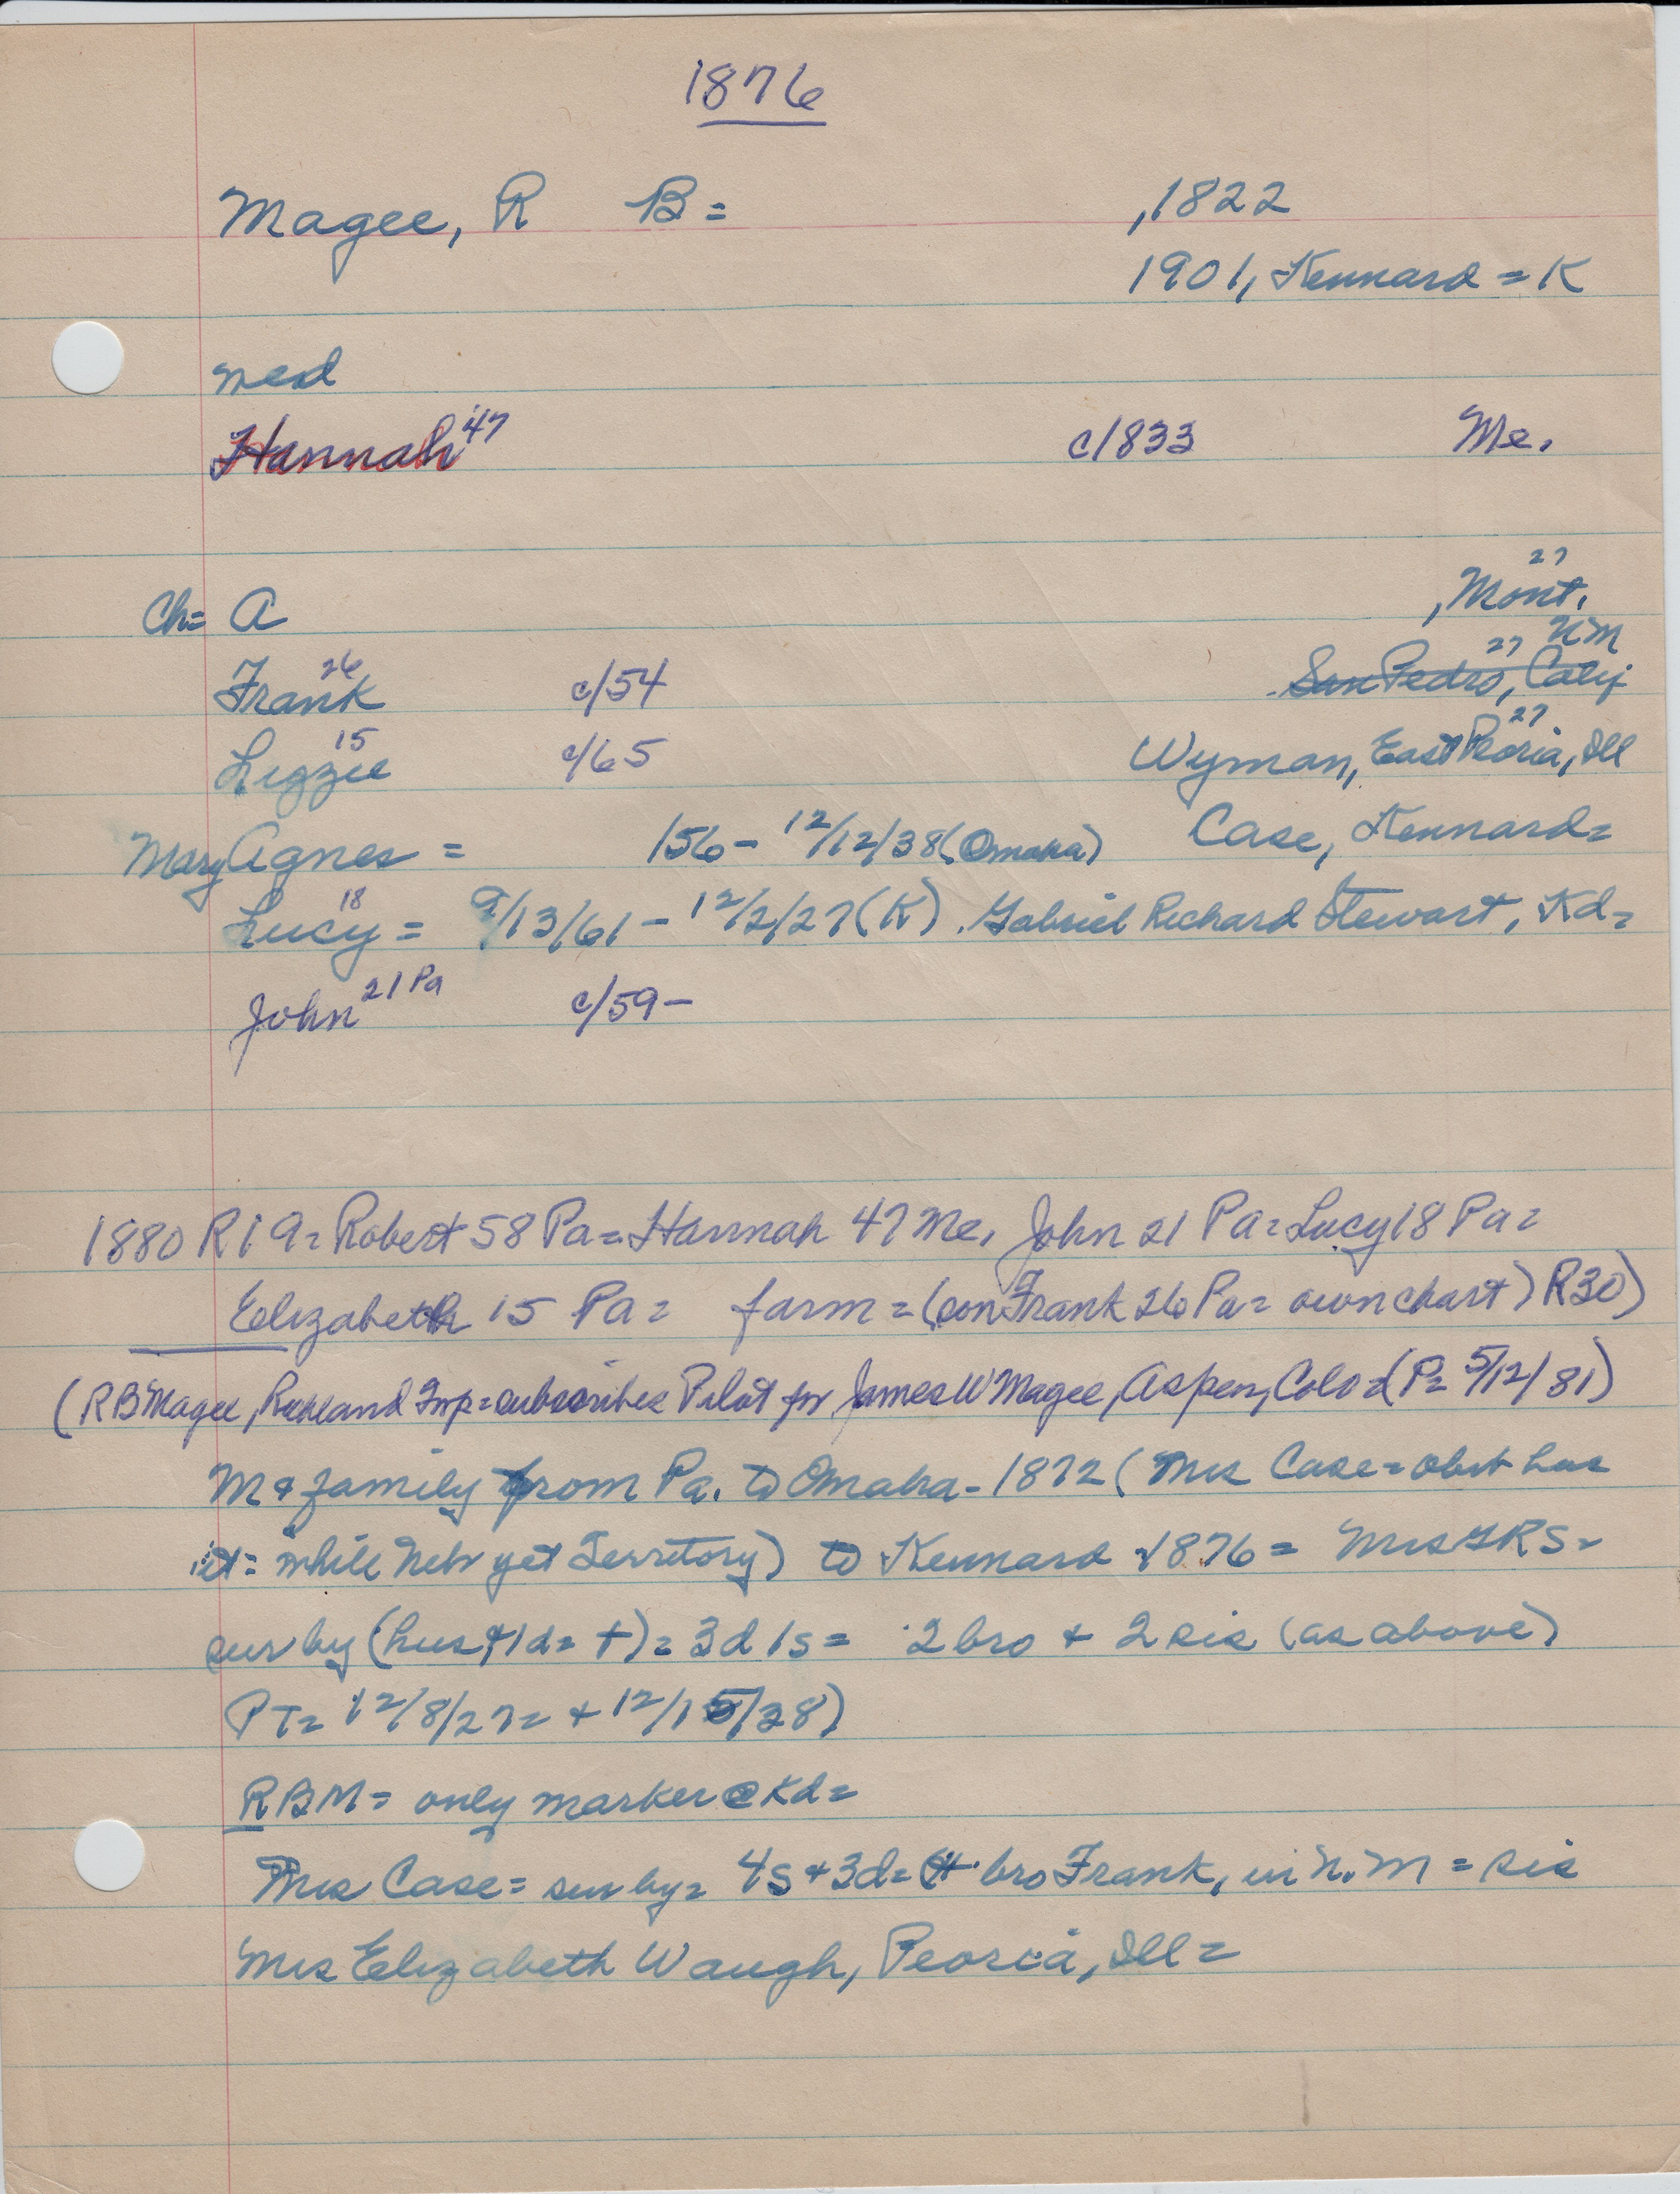 1876
Magee, R B = ,1822
1901, Kennard = K
med
Hannah 47 c/833 Me.
Ch= A , Mont. 27
Frank 26 c/54 San Pedro, Calif 27 NM
Lizzie 15 c/65 Wyman, East Peoria, Ill 27
Mary Agnes = /56 - 12/12/38 (Omaha) Case, Kennard=
Lucy 18 = 9/13/61 - 12/2/27 (K) . Gabriel Richard Stewart, Kd=
John 21 Pa c/59 -
1880 R19= Robert 58 Pa= Hannah 47 Me, John 21 Pa= Lucy 18 Pa=
Elizabeth 15 Pa= farm = (son Frank 26 Pa= own chart) R30)
(RB Magee, Richland Twp = subscribes Pilot for James W Magee, Aspen, Colo = (P= 5/12/81)
M & family from Pa. to Omaha - 1872 (Mrs Case = obit has
it: while Neb yet Territory) to Kennard 1876 = Mrs GRS =
sur by (hus & 1d = +) = 3d 1s = 2 bro + 2 sis (as above)
PT= 12/8/27 = + 12/15/38)
RBM = only marker @ Kd =
Mrs Case = sur by = 4s + 3d = bro Frank, in N. M = sis
Mrs Elizabeth Waugh, Peoria, Ill =